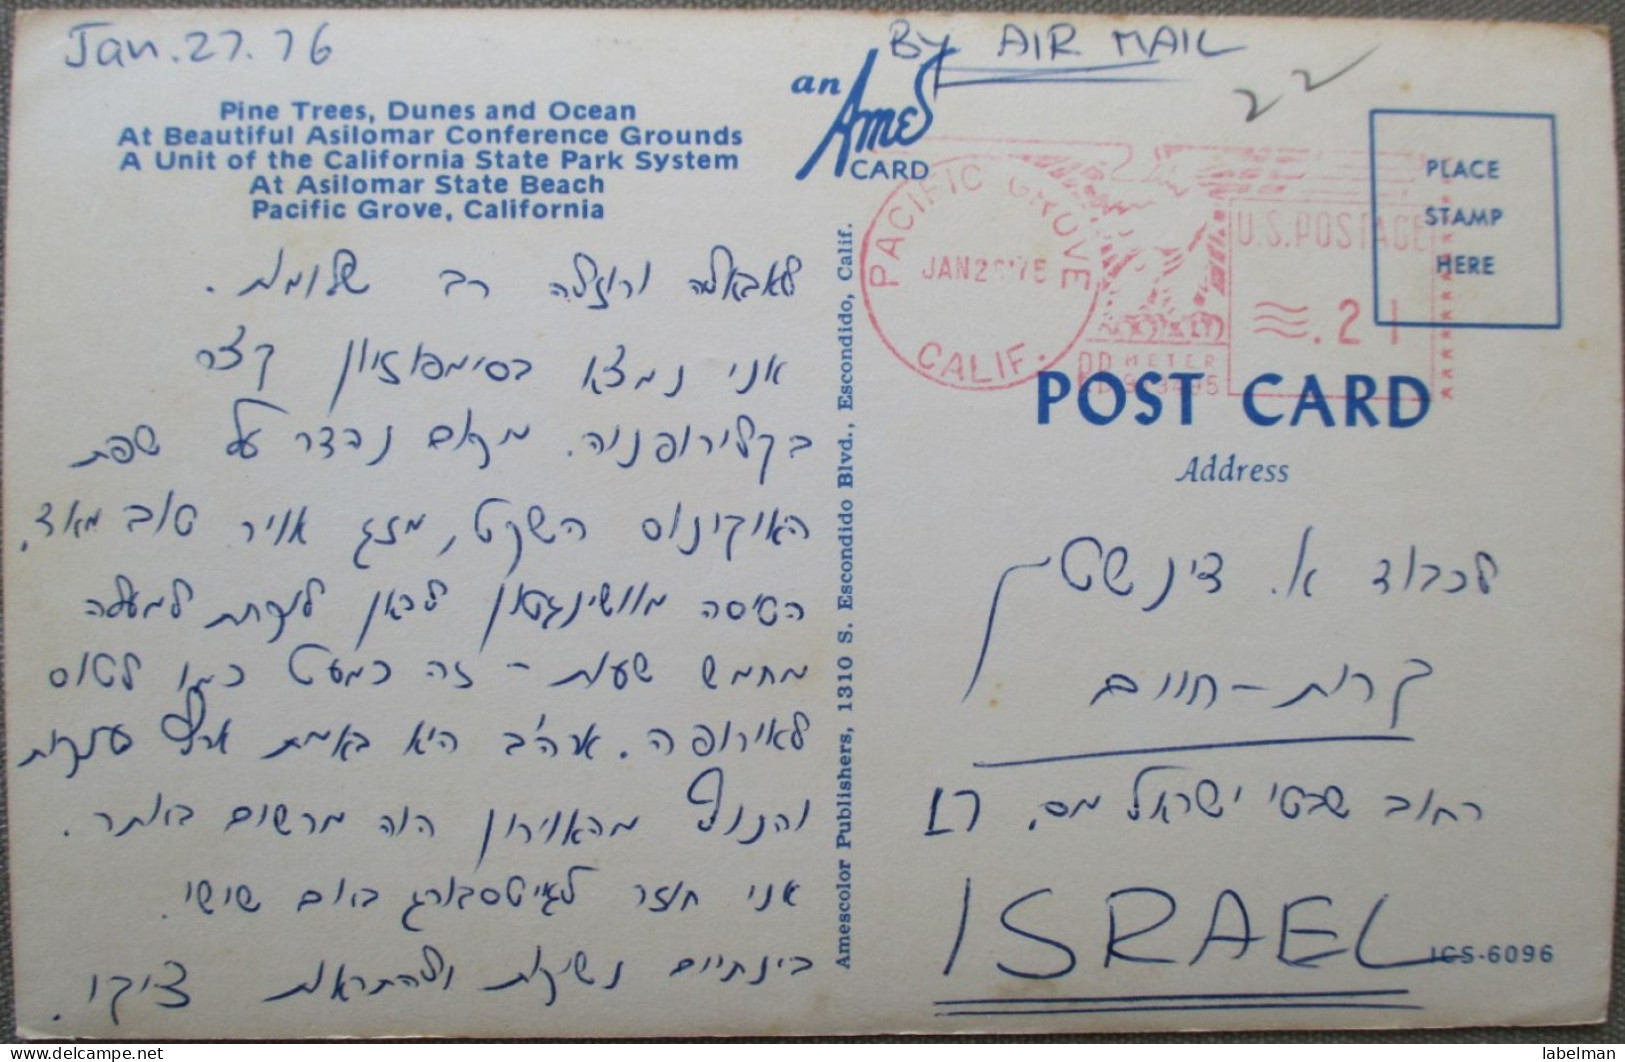 Jan. 27. 76
BY AIR MAIL
22
Pine Trees, Dunes and Ocean
At Beautiful Asilomar Conference Grounds
A Unit of the California State Park System
At Asilomar State Beach
Pacific Grove, California
an
Ames
CARD
לאבאלה ורוזלה רב שלומות.
אני נמצא בסימפוזיון קצר
בקליפורניה. מקום נהדר על שפת
האוקינוס השקט, מזג אויר טוב מאד.
הטיסה מוושינגטון לכאן לוקחת למעלה
מחמש שעות - זה כמעט כמו לטוס
לאירופה. ארה"ב היא באמת ארץ ענקית
והנוף מהאוירון היה מרשים ביותר.
אני חוזר לגיטסבורג ביום שישי.
בינתיים נשיקות ולהתראות ציקי.
Amescolor Publishers, 1310 S. Escondido Blvd., Escondido, Calif.
PACIFIC GROVE
CALIF.
U.S. POSTAGE
.21
METER
PLACE
STAMP
HERE
POST CARD
Address
לכבוד א. דינשטיין
קרית-חיים
רחוב שבטי ישראל מס. 17
ISRAEL
ICS-6096
labelman delcampe.net